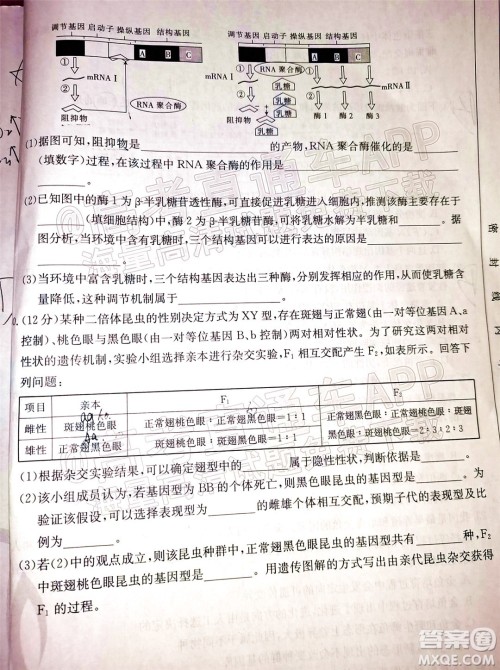 调节基因 启动子 操纵基因 结构基因
调节基因 启动子 操纵基因 结构基因
A B C
A B C
① mRNA Ⅰ
② RNA聚合酶
阻抑物
① mRNA Ⅰ RNA聚合酶 mRNA Ⅱ
② 乳糖 ③
乳糖 乳糖
阻抑物 乳糖 酶1 酶2 酶3
(1)据图可知,阻抑物是________的产物,RNA聚合酶催化的是________
(填数字)过程,在该过程中RNA聚合酶的作用是________
________。
(2)已知图中的酶1为β-半乳糖苷透性酶,可促进乳糖进入细胞内,推测该酶主要存在于
________(填细胞结构)中,酶2为β-半乳糖苷酶,可将乳糖水解为葡萄糖和半乳
糖。分析,当环境中含有乳糖时,三个结构基因可以进行表达的原因是________
________。
(3)当环境中富含乳糖时,三个结构基因表达出三种酶,分别发挥相关作用,使乳糖的含
量降低,这种调节机制属于________。
(12分)某种二倍体昆虫的性别决定方式为XY型,存在斑翅与正常翅(由一对等位基因A、a
控制)、桃色眼与黑色眼(由一对等位基因B、b控制)两对相对性状。为了研究这两对相对
性状的遗传机制,实验小组选择亲本进行杂交实验,F₁相互交配产生F₂。回答下
列问题:
项目 亲本 F₁ F₂
雌性 斑翅桃色眼 正常翅桃色眼∶正常翅黑色眼=1∶1 正常翅桃色眼∶正常翅黑色眼∶斑翅
雄性 正常翅黑色眼 斑翅桃色眼∶斑翅黑色眼=1∶1 桃色眼∶斑翅黑色眼=2∶3∶2∶3
(1)根据杂交实验结果,可以确定翅型中的________属于隐性性状,依据是________。
(2)该小组成员认为,若基因型为BB的个体死亡,则F₂黑色眼昆虫的基因型为________。为
验证该假设,可以选择表现型为________的雌雄个体相互交配,预期子代的表现型及
比例为________。
(3)若(2)中的观点成立,则该昆虫种群中,正常翅黑色眼昆虫的基因型共有________种,F₂
中斑翅桃色眼昆虫的基因型是________。用遗传图解的方式写出由亲代昆虫杂交获得
F₁的过程。
密
封
线
答案圈
MXQE.COM